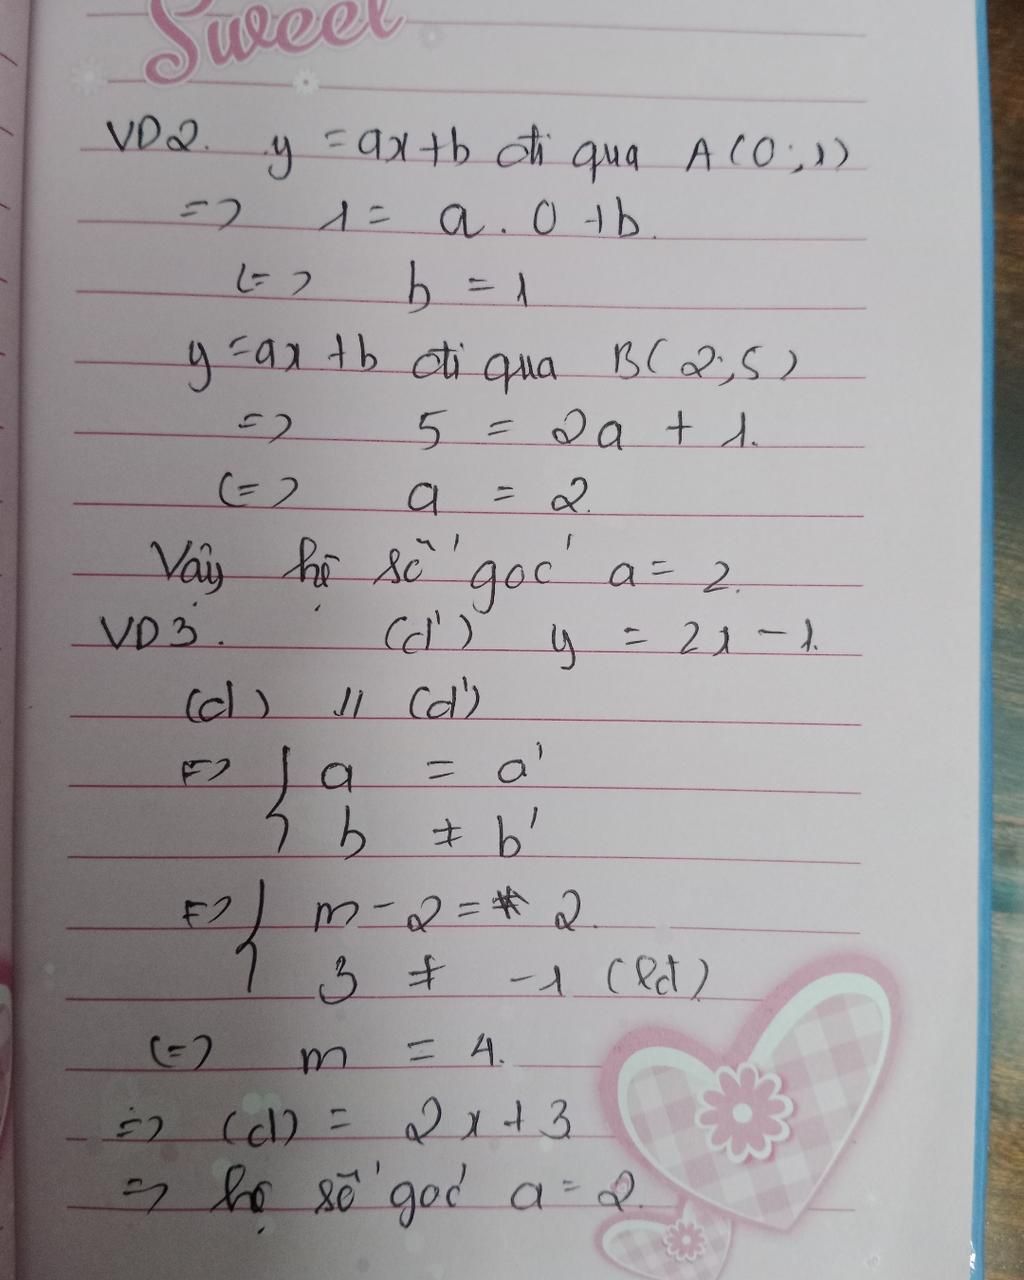 Sweet
VD2. y = ax + b đi qua A(0;1)
=> 1 = a . 0 + b.
<=> b = 1
y = ax + b đi qua B(2;5)
=> 5 = 2a + 1.
<=> a = 2.
Vậy hệ số góc a = 2.
VD3. (d') y = 2x - 1.
(d) // (d')
<=> { a = a'
b ≠ b'
<=> { m - 2 = 2.
3 ≠ -1 (lđ)
<=> m = 4.
=> (d) = 2x + 3
=> hệ số góc a = 2.